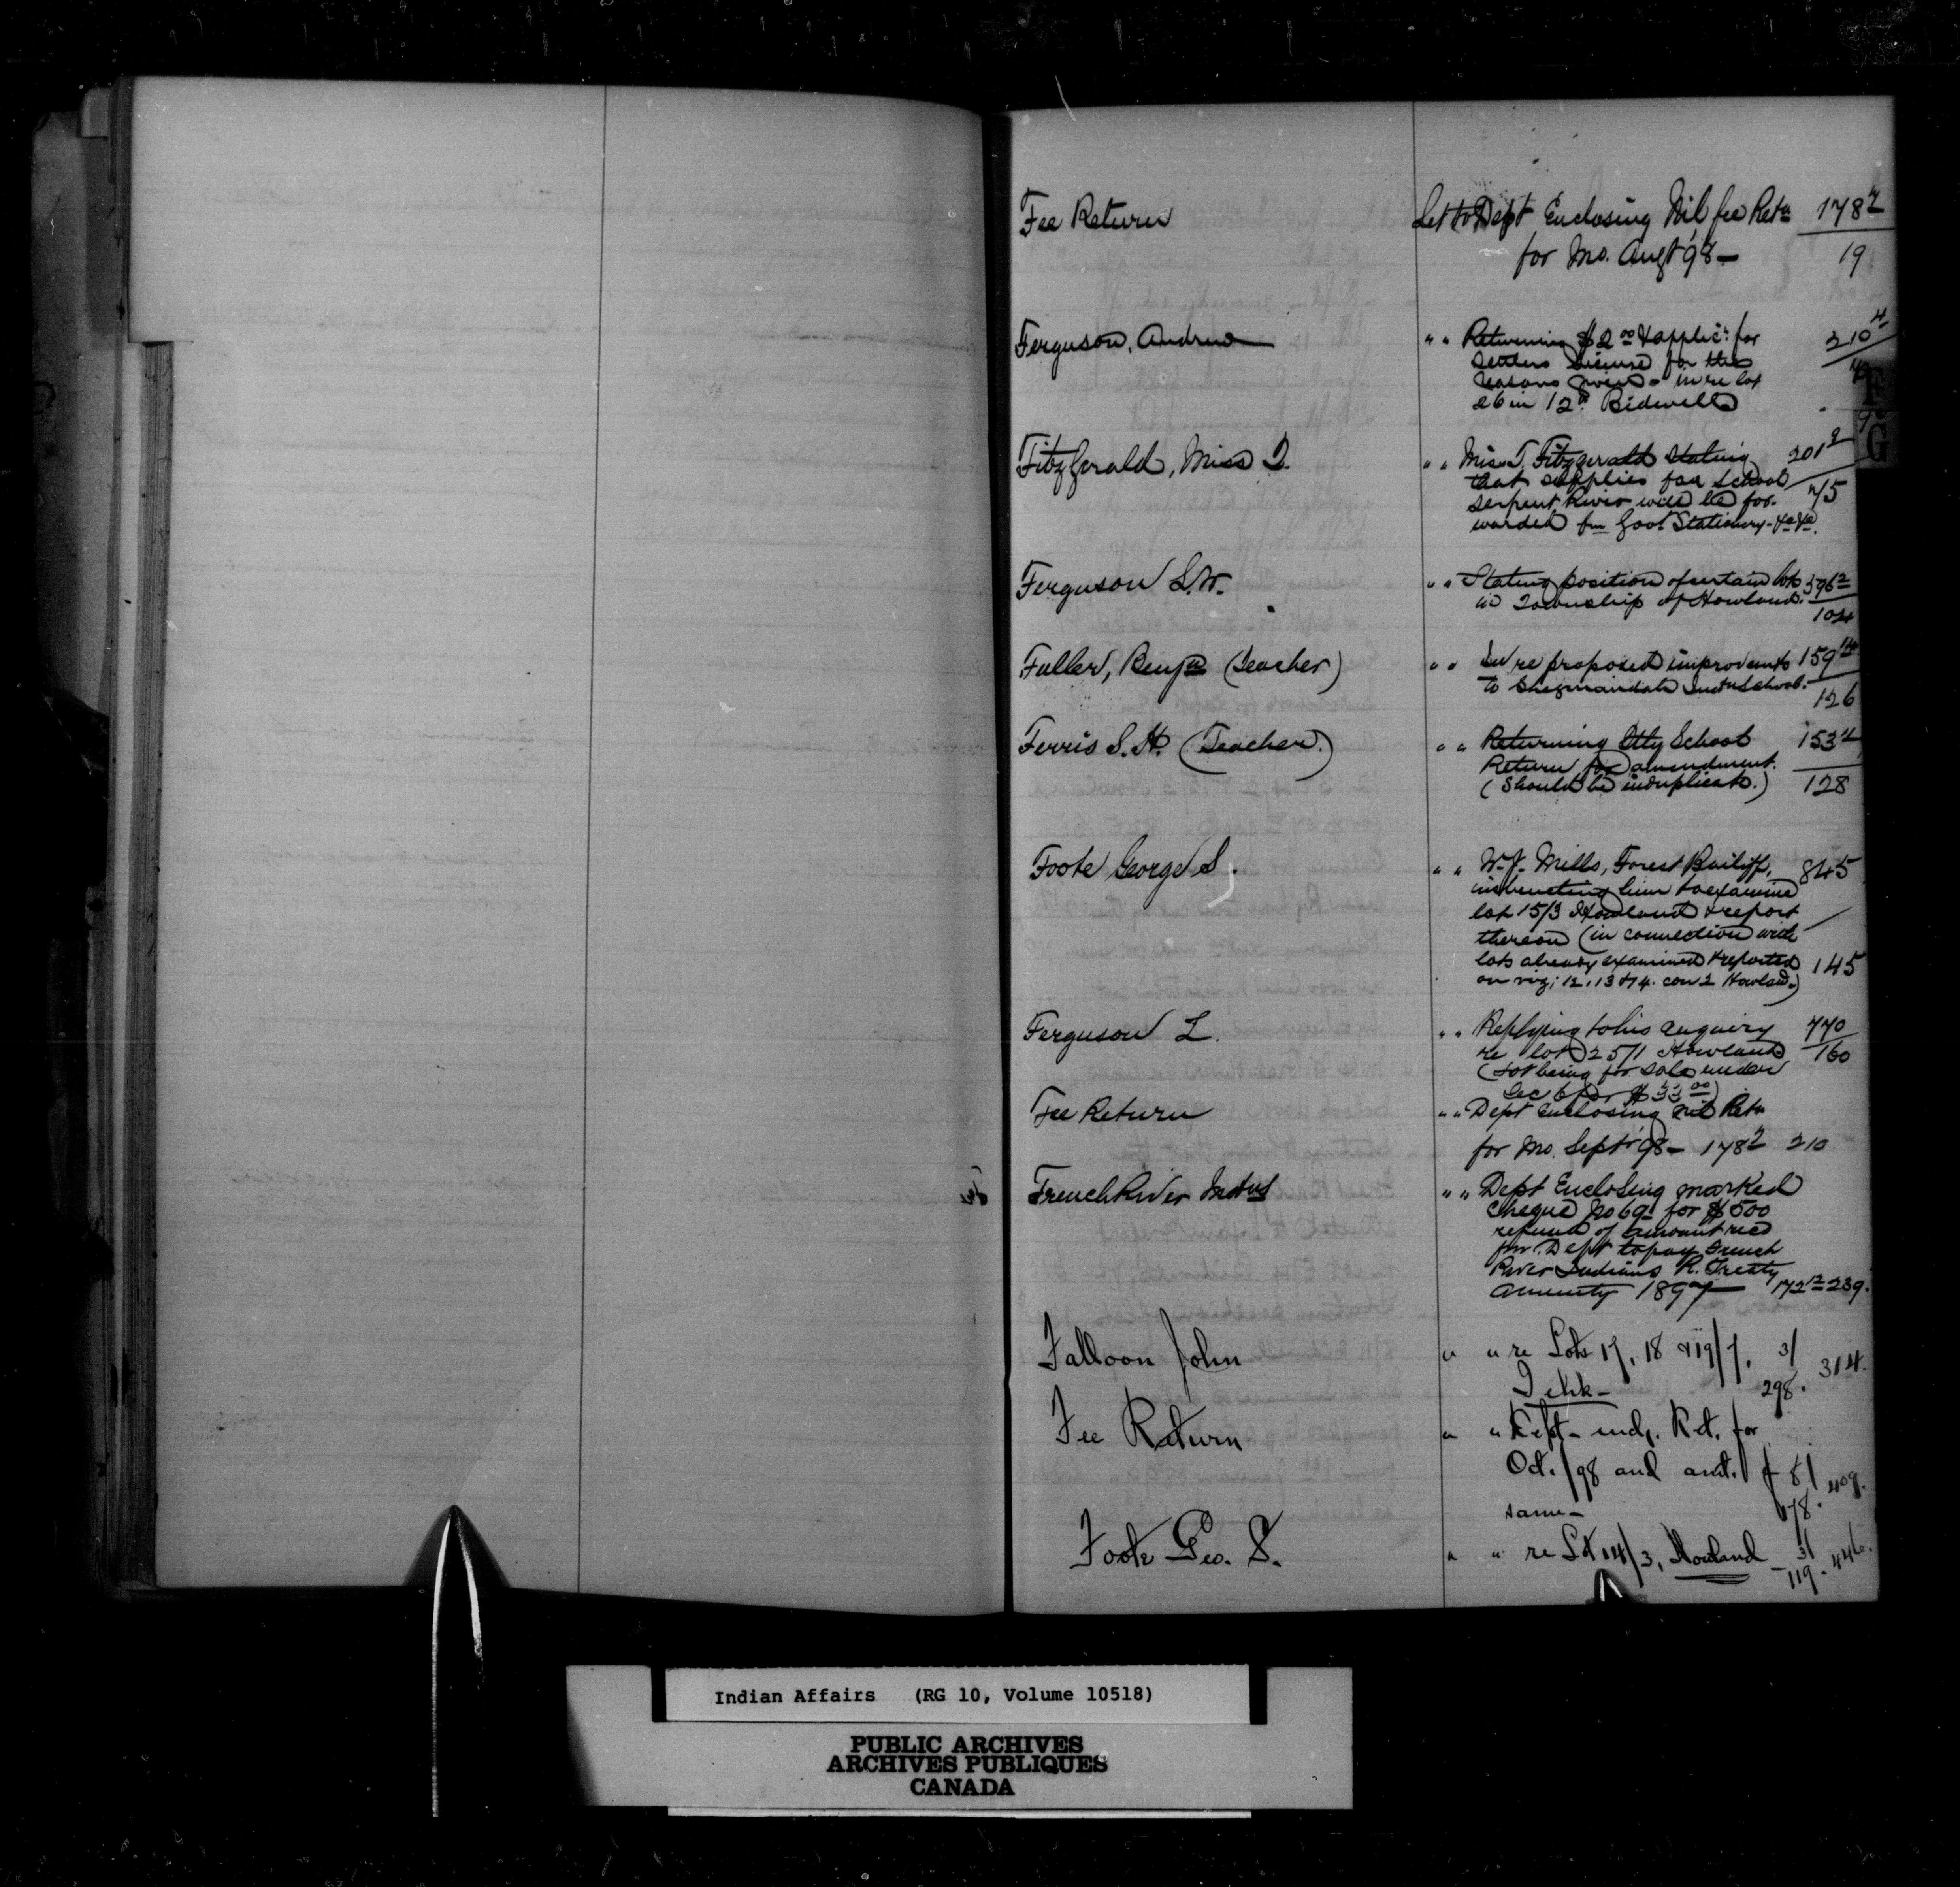 Fee Return Let to Dept Enclosing Nil fee Retn 178 2
for Mo. Augt '98 — 19
Ferguson, Andrew " " Returning $2 00 & applic: for 210 4
Settlers License for the
reasons given - in re lot
26 in 12th Bidwell
Fitzgerald, Miss T. " " Miss T. Fitzgerald Stating 201 2
that supplies for School 75
Serpent River will be for-
warded fm Govt Stationery - &c &c.
Ferguson L.W. " " Stating position of certain lots 396 2
in Township of Howland. 104
Fuller, Benjn (Teacher) " " In re proposed improvemts 159 14
to Shegmaindah Indn School. 126
Ferris S. H. (Teacher.) " " Returning Qtly School 153 4
Return for amendment.
(Should be in duplicate.) 128
Foote George S. " " W. J. Mills, Forest Bailiff, 845
instructing him to examine
lot 15/3 Howland & report
thereon (in connection with
lots already examined & reported 145
on viz; 12, 13 & 14. con 2 Howland.)
Ferguson L. " " Replying to his enquiry 770
re lot 25/1 Howland 160
(Lot being for sale under
Sec 6 for $33 00)
Fee Return " " Dept Enclosing nil Retn
for Mo. Sept '98 — 178 2 210
Fre French River Indns " " Dept Enclosing marked
Cheque No 69 for $500
refund of amount recd
fm Dept to pay French
River Indians R. Treaty
annuity 1897 — 172 12 239.
Falloon John " " re Lots 17, 18 & 19/7, 3/ 314.
Tehk — 298.
Fee Return " " Dept — encl. Ret. for
Oct. /98 and amt. of 8/ 409.
same — 178.
Foote Geo. S. " " re Lot 14/3, Howland 3/ 446.
119.
F
G
Indian Affairs (RG 10, Volume 10518)
PUBLIC ARCHIVES
ARCHIVES PUBLIQUES
CANADA